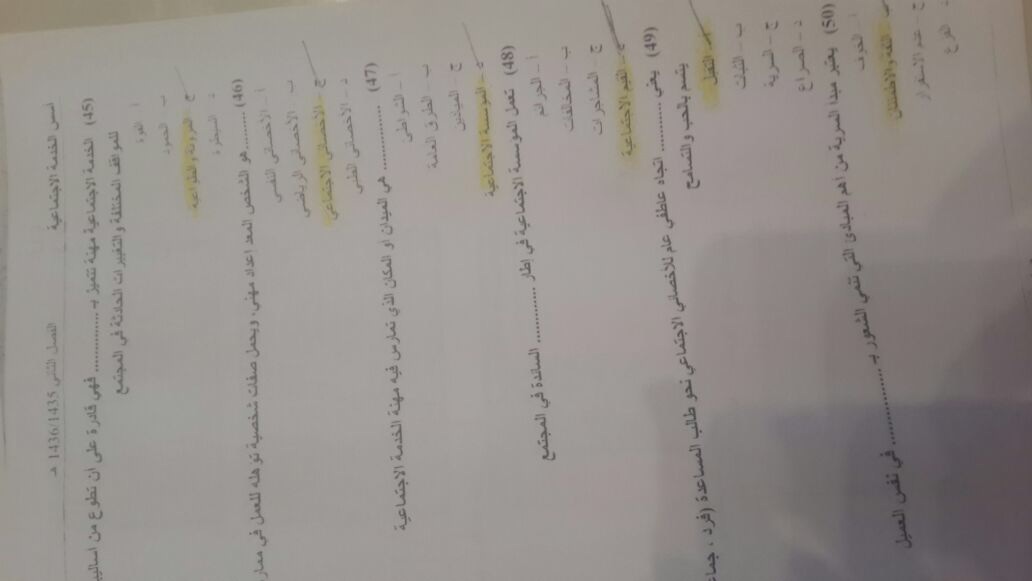 أسس الخدمة الاجتماعية الفصل الثاني 1436/1435 هـ
(45) الخدمة الاجتماعية مهنة تتميز بـ .............. فهي قادرة على أن تطوع من أساليب
للمواقف المختلفة والتغييرات الحادثة في المجتمع
أ - القوة
ب - الجمود
ج - المرونة والطواعية
د - السيطرة
(46) ..........هو الشخص المعد اعداد مهني، ويحمل صفات شخصية تؤهله للعمل في
أ - الأخصائي النفسي
ب - الأخصائي الرياضي
ج - الأخصائي الاجتماعي
د - الأخصائي الفني
(47) .............. هي الميدان او المكان الذي تمارس فيه مهنة الخدمة الاجتماعية
أ - الشواطئ
ب - الطرق العامة
ج - الميادين
د - المؤسسة الاجتماعية
(48) تعمل المؤسسة الاجتماعية في إطار ............ السائدة في المجتمع
أ - الجرائم
ب - المخالفات
ج - المشاجرات
د - القيم الاجتماعية
(49) يعني .......... اتجاه عاطفي عام للأخصائي الاجتماعي نحو طالب المساعدة (فرد ،
يتسم بالحب والتسامح
أ - التقبل
ب - الثبات
ج - السرية
د - الصراع
(50) يعتبر مبدأ السرية من أهم المبادئ التي تنمي الشعور بـ .............. في نفس العميل
أ - الخوف
ب - الثقة والاطمئنان
ج - عدم الاستقرار
د - الفزع